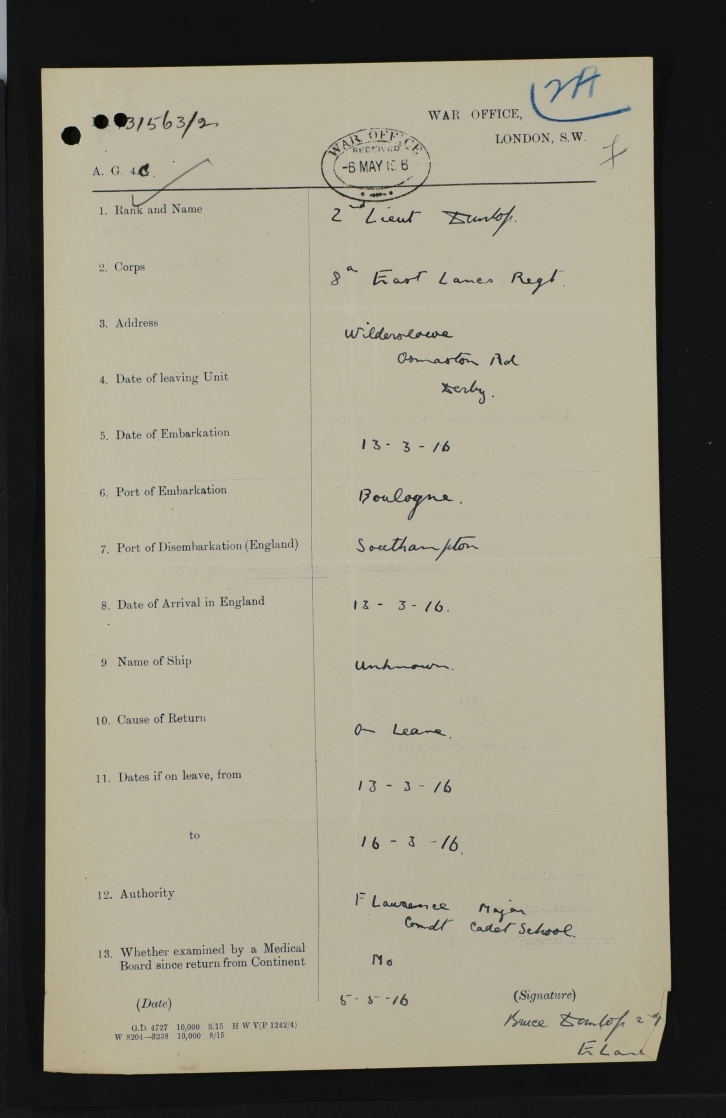 31563/2
2A
WAR OFFICE,
LONDON, S.W.
WAR OFFICE
RECEIVED
-6 MAY 19 6
A. G. 4.C.
1. Rank and Name
2nd Lieut Dunlop.
2. Corps
8th East Lancs Regt.
3. Address
Osmaston Rd
4. Date of leaving Unit
Derby.
5. Date of Embarkation
13-3-16
6. Port of Embarkation
Boulogne.
7. Port of Disembarkation (England)
Southampton
8. Date of Arrival in England
13-3-16.
9 Name of Ship
Unknown.
10. Cause of Return
On Leave.
11. Dates if on leave, from
13-3-16
to
16-3-16.
12. Authority
F Lawrence Major
Comdt Cadet School.
13. Whether examined by a Medical
Board since return from Continent
No
(Date)
5-5-16
(Signature)
Bruce Dunlop 2nd
E Lan
G.D. 4727 10,000 3/15 H W V(P 1242/4)
W 8204—8238 10,000 8/15